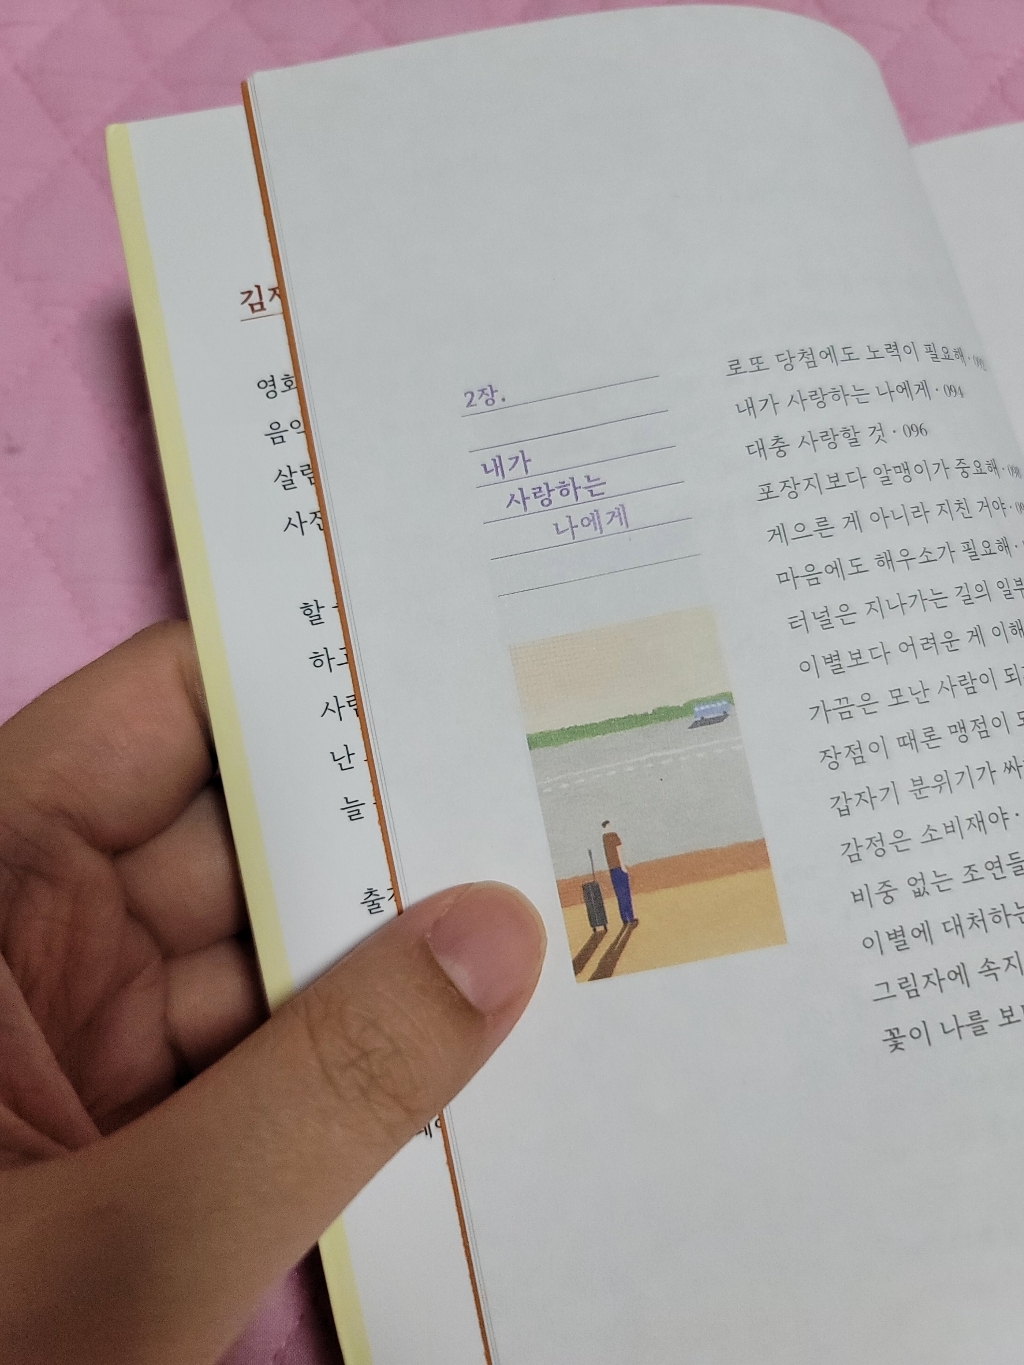 영화
할
하고
난
늘
2장.
내가
사랑하는
나에게
로또 당첨에도 노력이 필요해 ·
내가 사랑하는 나에게 · 094
대충 사랑할 것 · 096
포장지보다 알맹이가 중요해 ·
게으른 게 아니라 지친 거야 ·
마음에도 해우소가 필요해 ·
터널은 지나가는 길의
이별보다 어려운 게
가끔은 모난 사람이
장점이 때론 맹점이
갑자기 분위기가
감정은 소비재야 ·
비중 없는 조연들
이별에 대처하는
그림자에 속지
꽃이 나를